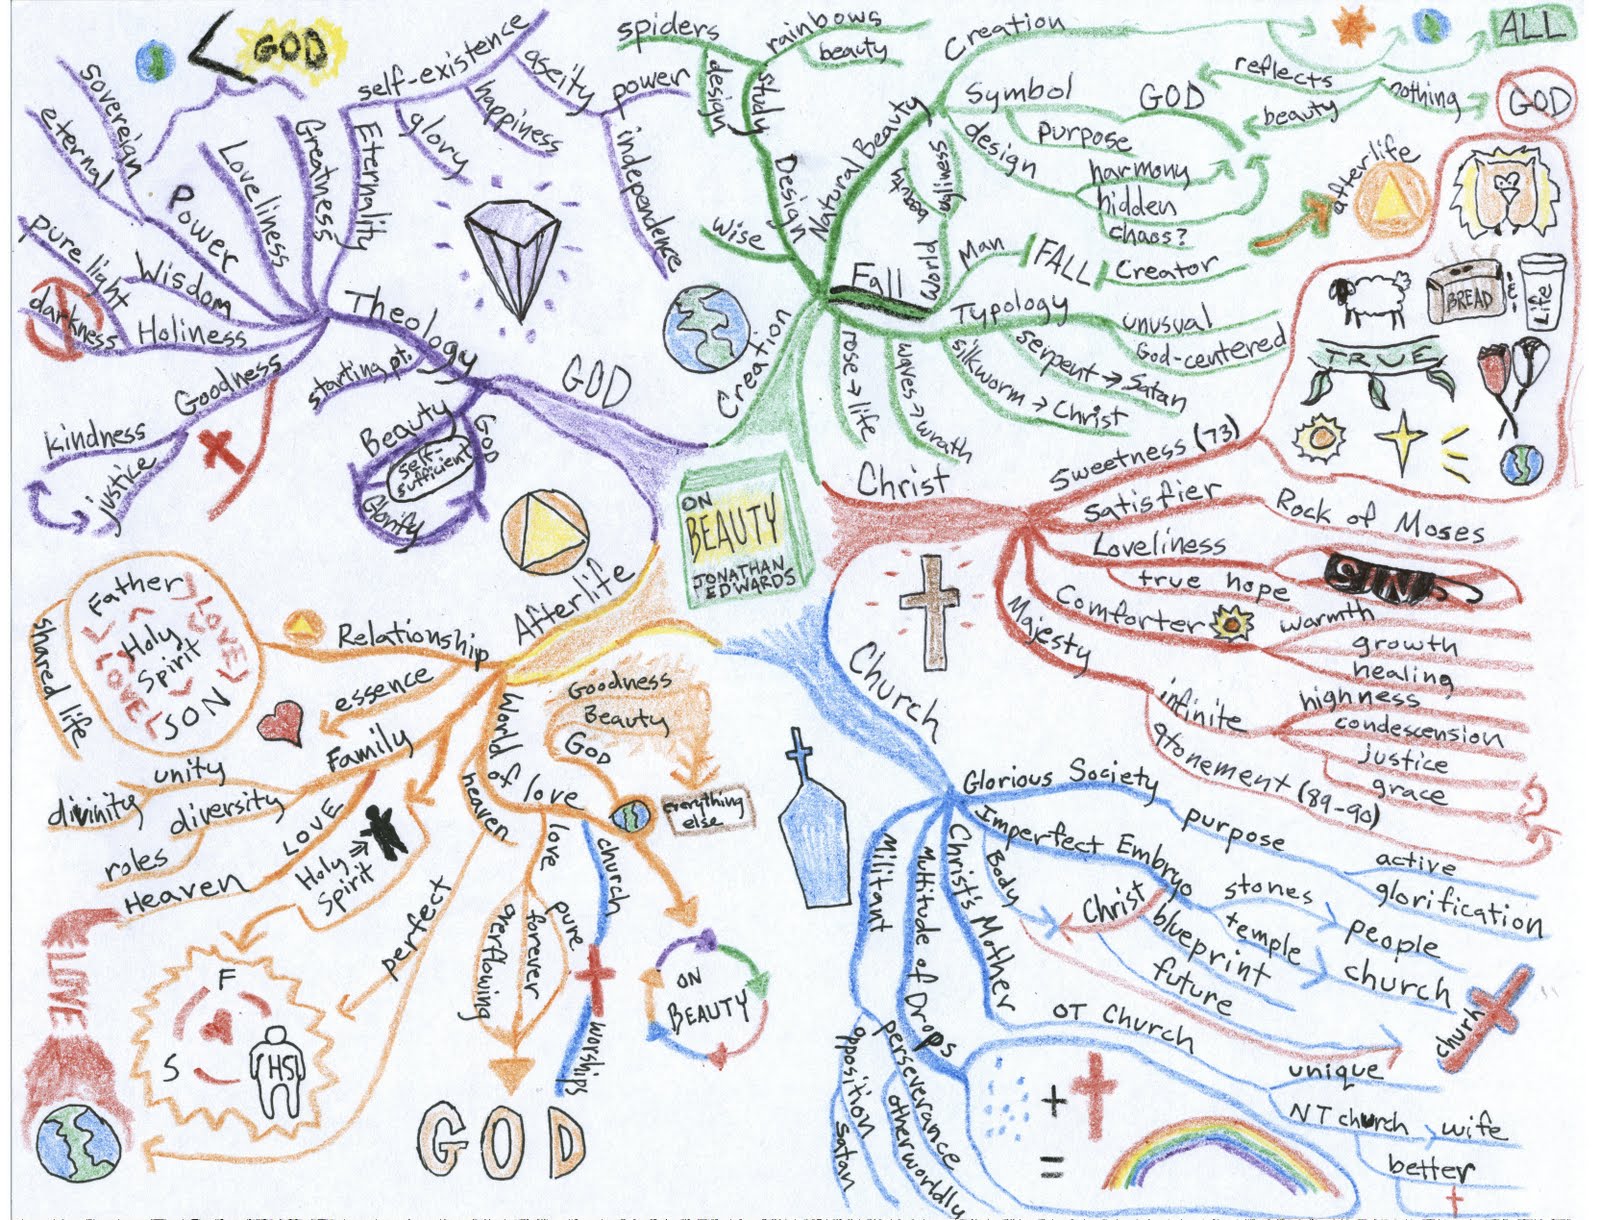 ON
BEAUTY
JONATHAN
EDWARDS
GOD
Theology
starting pt.
Beauty
GOD
Self-
sufficient
Glorify
Eternality
self-existence
glory
happiness
aseity
power
independence
Greatness
Loveliness
Power
sovereign
eternal
< GOD
Wisdom
Holiness
pure light
darkness
Goodness
kindness
justice
Creation
Wise
Design
study
spiders
design
rainbows
beauty
Natural Beauty
Creation
ALL
reflects
beauty
nothing
GOD
Symbol
GOD
purpose
design
harmony
hidden
chaos?
Fall
World
ugliness
beauty
Man
FALL
Creator
afterlife
Typology
unusual
God-centered
serpent → Satan
silkworm → Christ
waves → wrath
rose → life
Christ
Sweetness (73)
BREAD
Life
TRUE
Satisfier
Rock of Moses
Loveliness
SIN
true hope
Comforter
warmth
growth
healing
Majesty
infinite
highness
condescension
justice
grace
atonement (89-90)
Church
Glorious Society
purpose
active
glorification
Imperfect Embryo
stones
people
temple
church
blueprint
future
Body
Christ
church
Christ's Mother
OT Church
unique
NT church
wife
better
Multitude of Drops
+
=
Militant
perseverance
otherworldly
opposition
Satan
Afterlife
Relationship
Father
LOVE
Holy
Spirit
LOVE
SON
shared life
essence
Family
unity
divinity
diversity
roles
LOVE
Heaven
Holy
Spirit
LOVE
F
S
HS
perfect
World of love
heaven
love
pure
forever
overflowing
GOD
church
worships
Goodness
Beauty
GOD
everything
else
ON
BEAUTY